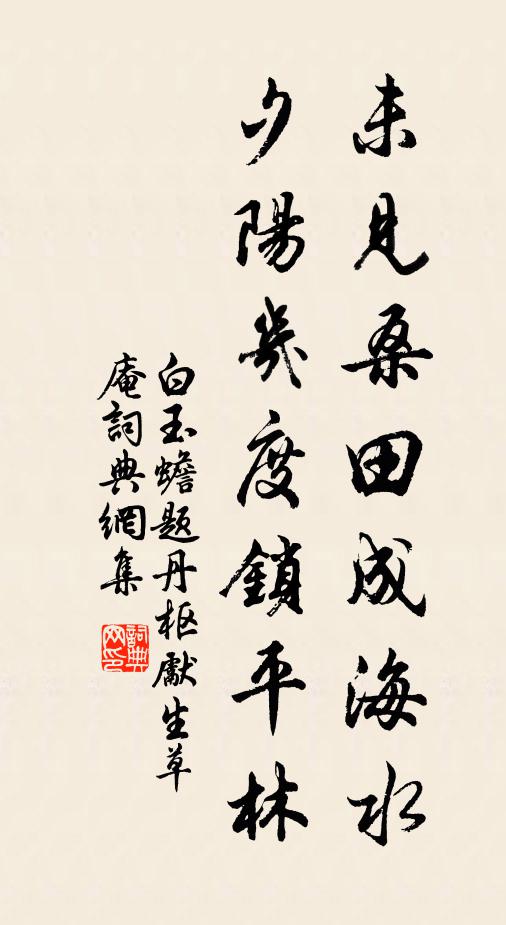 未見桑田成海水
夕陽幾度鎖平林
白玉蟾題丹枢獻生草
庵詞典網集
詞典
网印